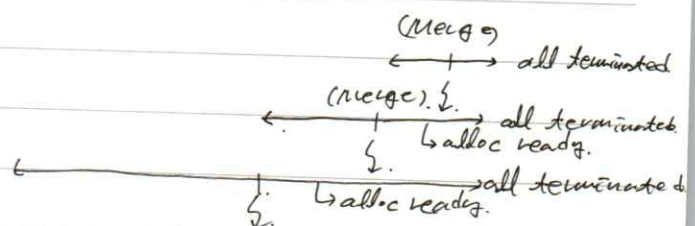 (merge)
all terminated
(merge). {.
all terminated.
↳alloc ready.
{.
all terminated
{. ↳alloc ready.